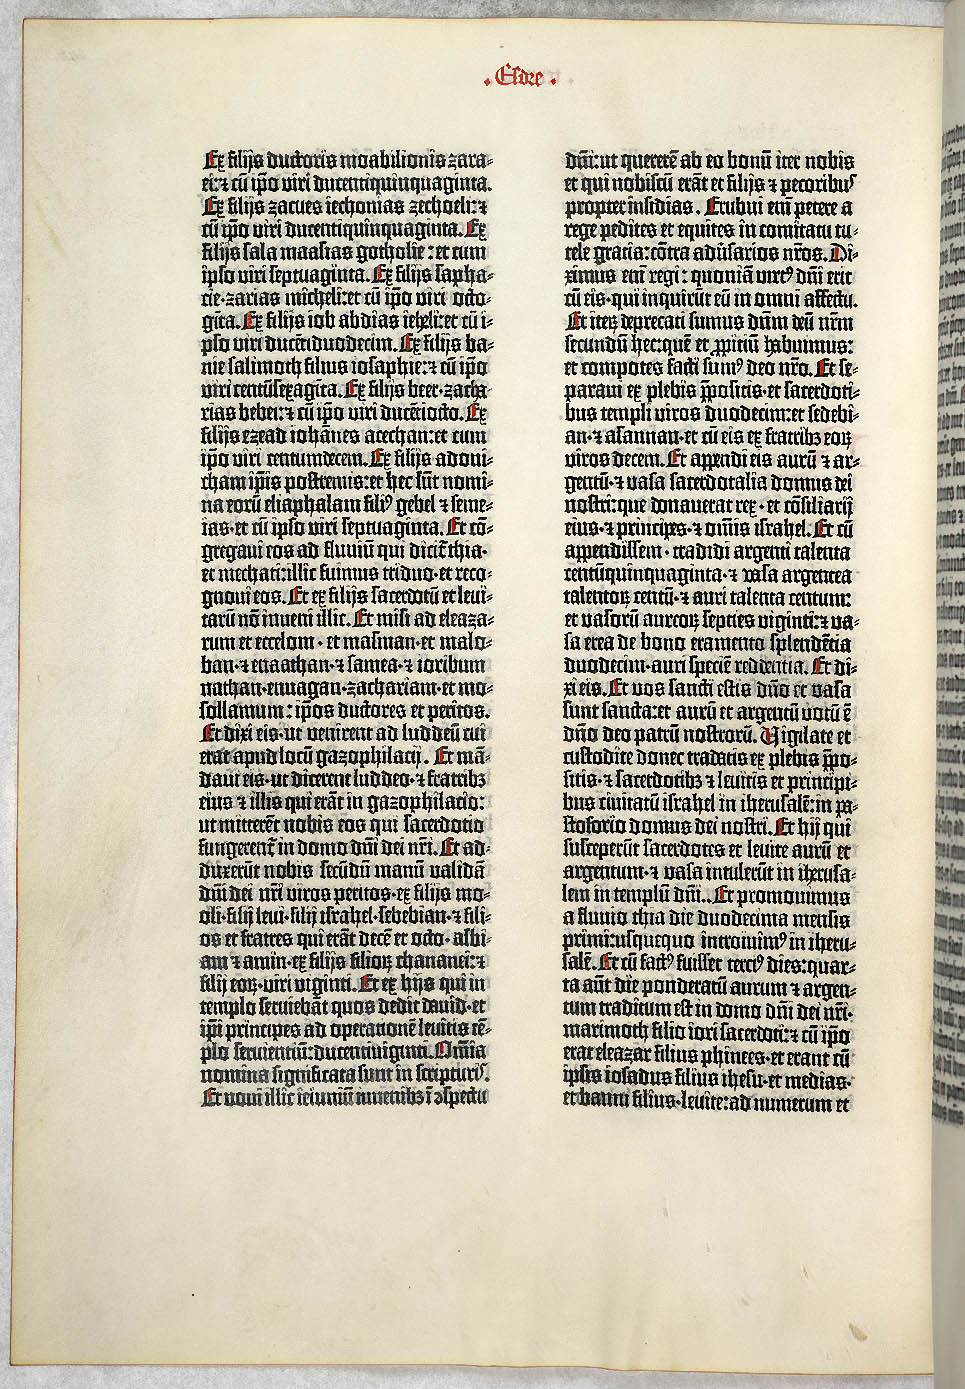 . Esdre .
Ex filijs ductoris moabilionis zara⸗
ei: ⁊ cū ip̄o viri ducentiquinquaginta.
Ex filijs zacues iechonias zecholei: ⁊
cū ip̄o viri ducentiquinquaginta. Ex
filijs sala maasias gotholie : et cum
ipso viri septuaginta. Ex filijs sapha⸗
cie · zarias micheli: et cū ip̄o viri octo⸗
gīta. Ex filijs iob abdias ieheli: et cū i⸗
pso viri ducēti duodecim. Ex filijs ba⸗
nie salimoth filius iosaphie: ⁊ cū ip̄o
viri centūsexagīta. Ex filijs beer · zacha⸗
rias bebei: ⁊ cū ip̄o viri ducētiocto. Ex
filijs ezead iohānes acechan: et cum
ip̄o viri centumdecem. Ex filijs adoni⸗
cham ip̄is postremis: et hec sūt nomi⸗
na eorū eliaphalam filiꝰ gebel ⁊ seme⸗
ias · et cū ipso viri septuaginta. Et cō⸗
gregavi eos ad fluviū qui dicit̄ thia ·
et mechati: illic fuimus triduo · et reco⸗
gnovi eos. Et ex filijs sacerdotū et levi⸗
tarū nō inveni illic. Et misi ad eleaza⸗
rum et eccelom · et masman · et malo⸗
ban · ⁊ enaathan · ⁊ samea · ⁊ ioribum
nathan · ennagan · zachariam · et mo⸗
sollamum : ip̄os ductores et peritos.
Et dixi eis · ut venirent ad luddeū cui
erat apud locū gazophilacij . Et mā⸗
davi eis · ut dicerent luddeo · ⁊ fratribꝫ
eius ⁊ illis qui erāt in gazophilacio:
ut mitterēt nobis eos qui sacerdotio
fungerent̄ in domo dn̄i dei nr̄i. Et ad⸗
duxerūt nobis secūdū manū validā
dn̄i dei nr̄i viros peritos · ex filijs mo⸗
oli · filij levi · filij israhel · sebebian · ⁊ fili⸗
os et fratres qui erāt decē et octo · asbi⸗
am ⁊ amin · ex filijs filioꝝ chananei: ⁊
filij eoꝝ · viri viginti. Et ex hijs qui in
templo serviebāt quos dedit david · et
ip̄i principes ad operationē levitis tē⸗
plo servientiū: ducentiviginti. Om̄ia
nomina significata sunt in scripturꝭ.
Et vovi illic ieiuniū iuvenibꝫ ī ꝯspectu
dn̄i: ut quererē ab eo bonū iter nobis
et qui nobiscū erāt et filijs ⁊ pecoribuꝰ
propter insidias . Erubui eni petere a
rege pedites et equites in comitatu tu⸗
tele gratia: cōtra adv̄sarios nr̄os. Di⸗
ximus eni regi : quoniā virtꝰ dn̄i erit
cū eis · qui inquirūt eū in omni affectu.
Et iteꝝ deprecati sumus dn̄m deū nr̄m
secundū hec: quē et ꝓpitiū habuimus:
et compotes facti sumꝰ deo nr̄o. Et se⸗
paravi ex plebis p̄positis · et sacerdoti⸗
bus templi viros duodecim: et sedebi⸗
an · ⁊ asannan · et cū eis ex fratribꝫ eoꝝ
viros decem. Et appendi eis aurū ⁊ ar⸗
gentū · ⁊ vasa sacerdotalia domus dei
nostri: que donaverat rex · et cōsiliarij
eius · ⁊ principes · ⁊ om̄is israhel. Et cū
appendissem · tradidi argenti talenta
centūquinquaginta · ⁊ vasa argentea
talentoꝝ centū · ⁊ auri talenta centum:
et vasorū aureoꝝ septies viginti: ⁊ va⸗
sa erea de bono eramento splendētia
duodecim · auri speciē reddentia. Et di⸗
xi eis. Et vos sancti estis dn̄o et vasa
sunt sancta: et aurū et argentū votū ē
dn̄o deo patrū nostrorū. Vigilate et
custodite donec tradatis ex plebis p̄po⸗
sitis · ⁊ sacerdotibꝫ ⁊ levitis et principi⸗
bus civitatū israhel in iherusalē: in pa⸗
stoforio domus dei nostri. Et hij qui
susceperūt sacerdotes et levite aurū et
argentum · ⁊ vasa intulerūt in iherusa⸗
lem in templū dn̄i.. Et promovimus
a fluvio thia die duodecima mensis
primi: usquequo introivimꝰ in iheru⸗
salē. Et cū factꝰ fuisset tercius dies: quar⸗
ta aūt die ponderatū aurum ⁊ argen⸗
tum traditum est in domo dn̄i dei nr̄i ·
marimoth filio iori sacerdoti: ⁊ cū ip̄o
erat eleazar filius phinees · et erant cū
ipsis iosadus filius ihesu · et medias ·
et banni filius · levite: ad numerum et